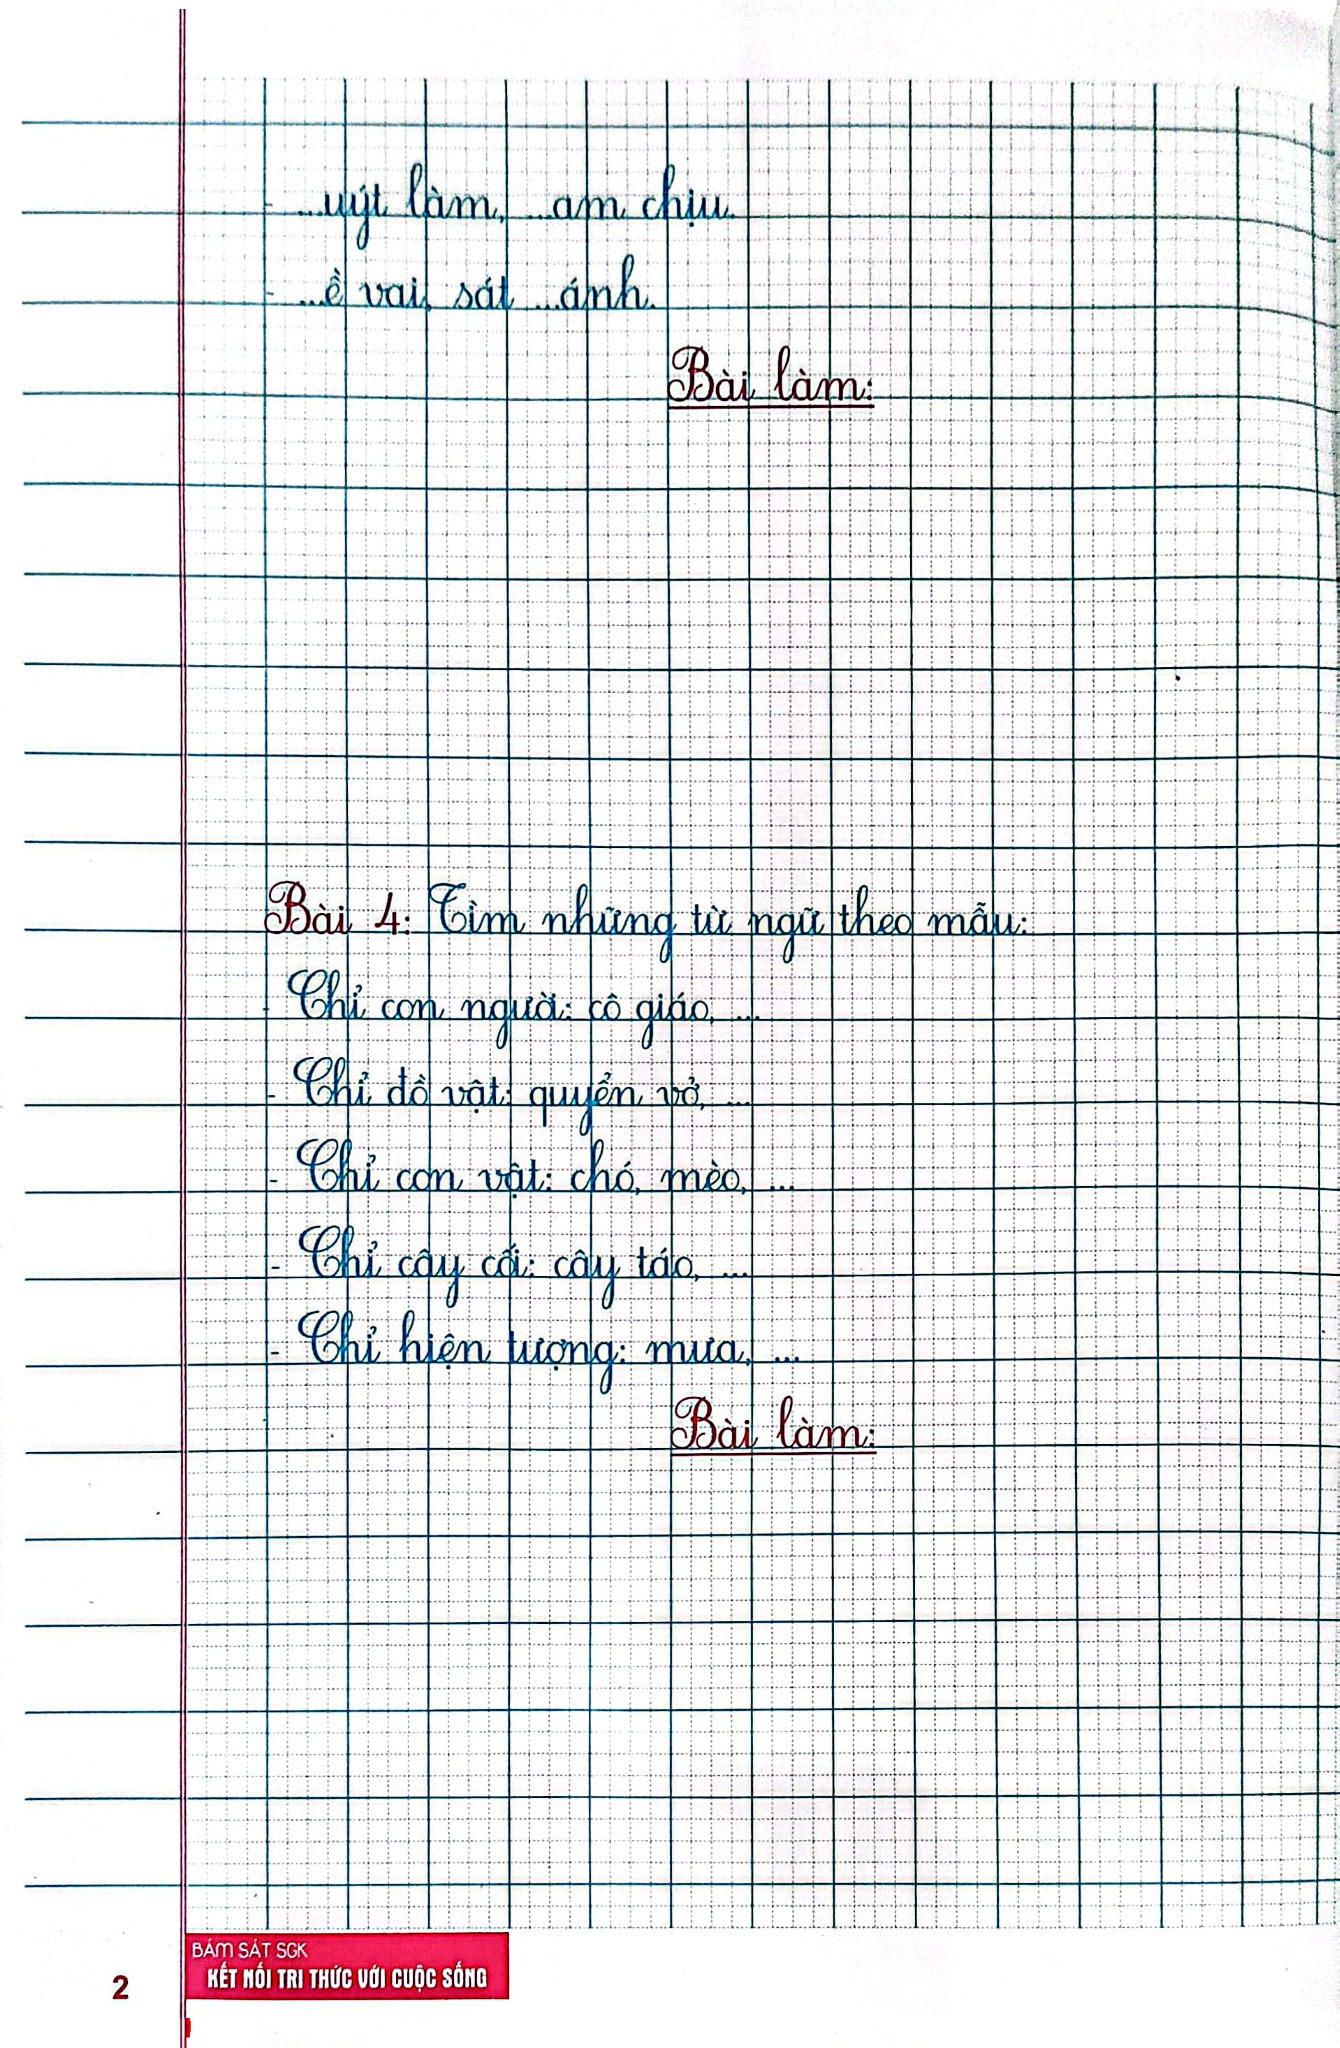 - ...uýt làm, ...am chịu.
- ...ề vai, sát ...ánh.
Bài làm:
Bài 4: Tìm những từ ngữ theo mẫu:
- Chỉ con người: cô giáo, ...
- Chỉ đồ vật: quyển vở, ...
- Chỉ con vật: chó, mèo, ...
- Chỉ cây cối: cây táo, ...
- Chỉ hiện tượng: mưa, ...
Bài làm:
BÁM SÁT SGK
KẾT NỐI TRI THỨC VỚI CUỘC SỐNG
2